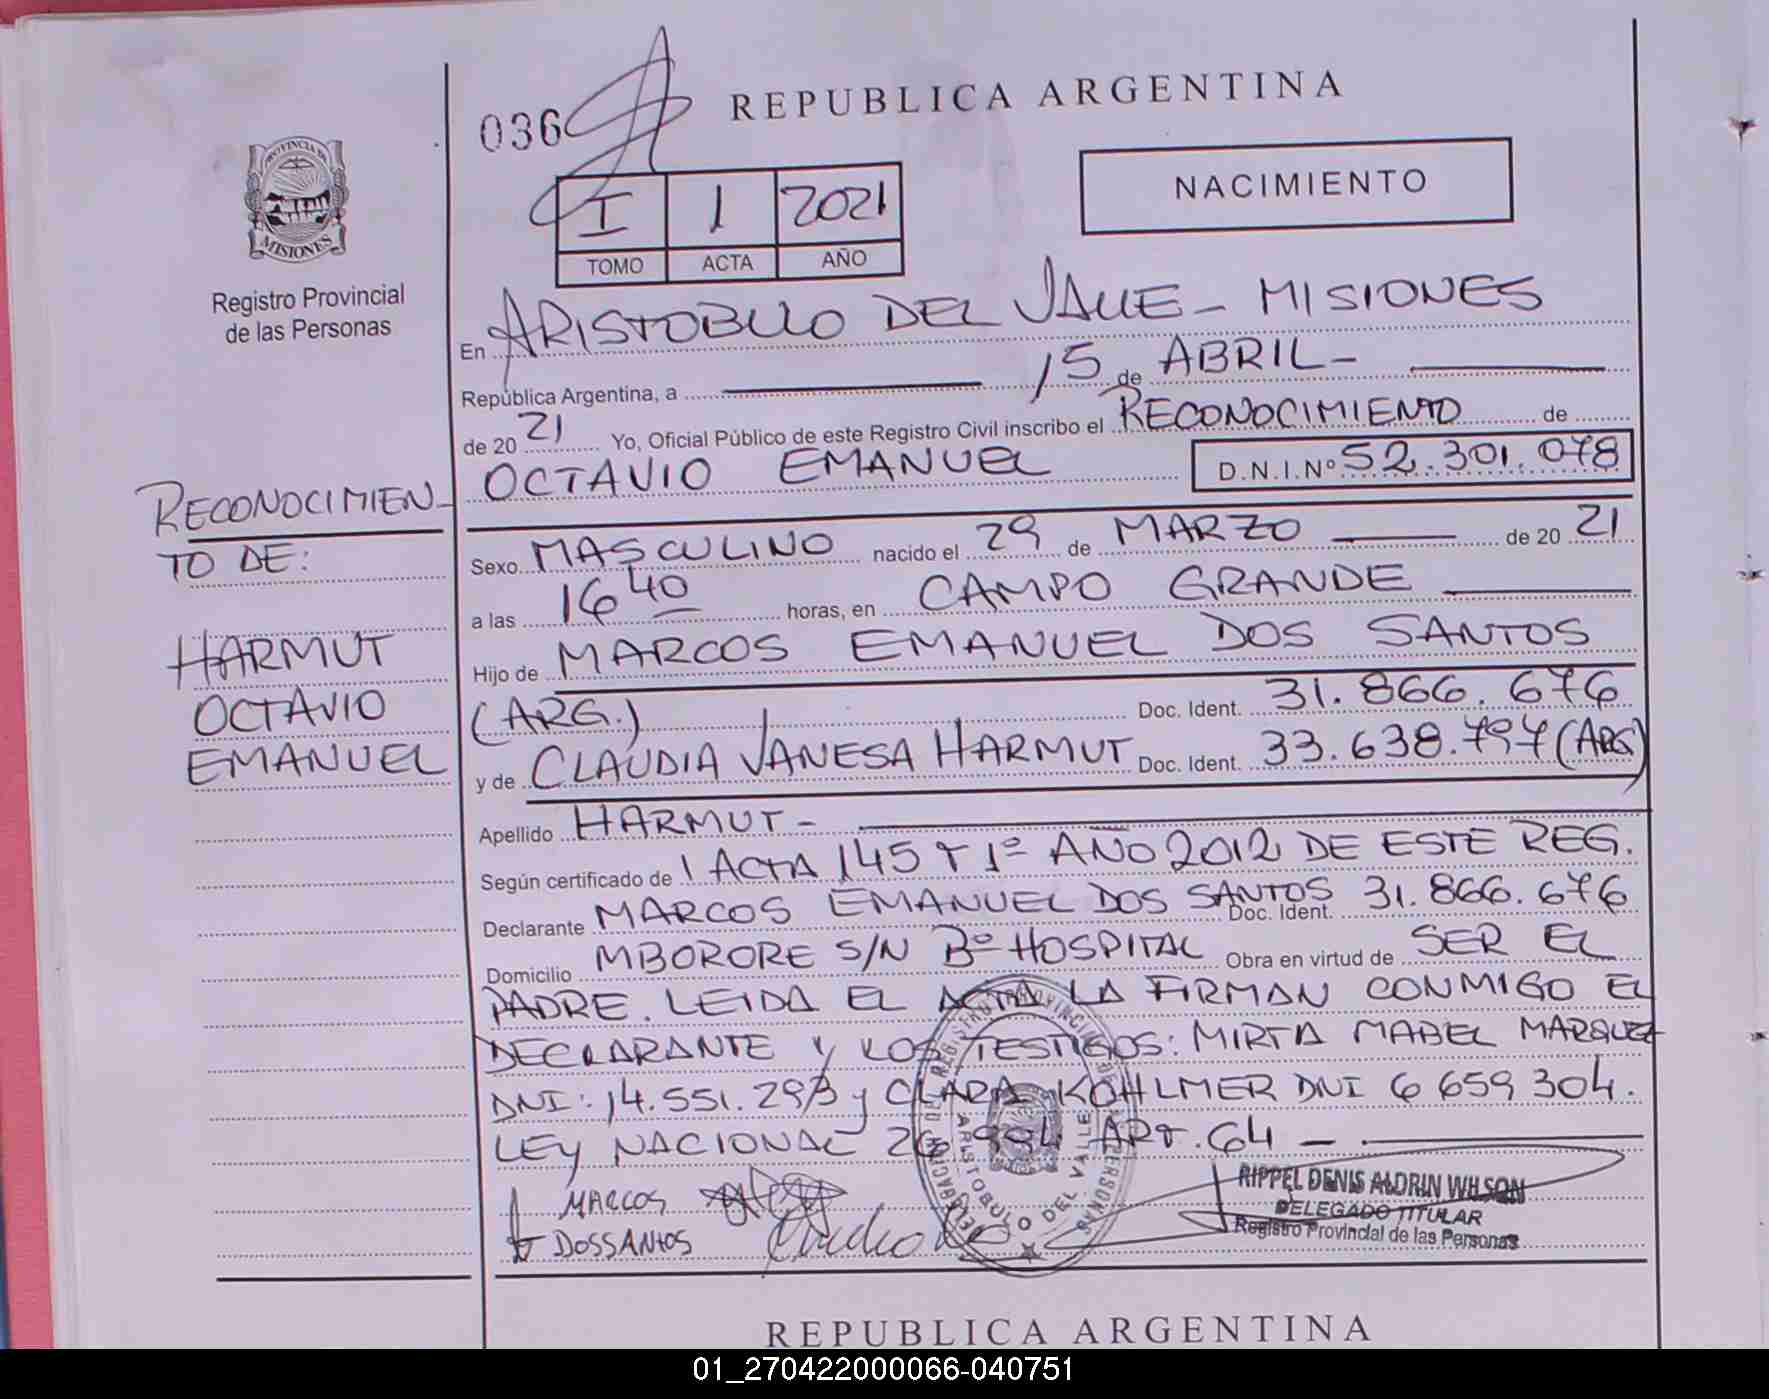 036
REPUBLICA ARGENTINA
PROVINCIA DE
MISIONES
Registro Provincial
de las Personas
I 1 2021
TOMO ACTA AÑO
NACIMIENTO
En ARISTOBULO DEL VALLE - MISIONES
República Argentina, a 15 de ABRIL -
de 20 21 Yo, Oficial Público de este Registro Civil inscribo el RECONOCIMIENTO de
OCTAVIO EMANUEL D.N.I.Nº 52.301.078
RECONOCIMIEN-
TO DE:
HARMUT
OCTAVIO
EMANUEL
Sexo MASCULINO nacido el 29 de MARZO de 20 21
a las 16 40 horas, en CAMPO GRANDE
Hijo de MARCOS EMANUEL DOS SANTOS
(ARG.) Doc. Ident. 31.866.676
y de CLAUDIA VANESA HARMUT Doc. Ident. 33.638.797 (ARG)
Apellido HARMUT -
Según certificado de 1 ACTA 145 T 1º AÑO 2012 DE ESTE REG.
Declarante MARCOS EMANUEL DOS SANTOS Doc. Ident. 31.866.676
Domicilio MBORORE S/N Bº HOSPITAL Obra en virtud de SER EL
PADRE. LEIDA EL ACTA LA FIRMAN CONMIGO EL
DECLARANTE Y LOS TESTIGOS: MIRTA MABEL MARQUEZ
DNI: 14.551.293 y CLARA KOHLMER DNI 6 659 304.
LEY NACIONAL 26.994 ART. 64 -
MARCOS
DOSSANTOS
ARISTOBULO DEL VALLE
RIPPEL DENIS ALDRIN WILSON
DELEGADO TITULAR
Registro Provincial de las Personas
REPUBLICA ARGENTINA
01_270422000066-040751